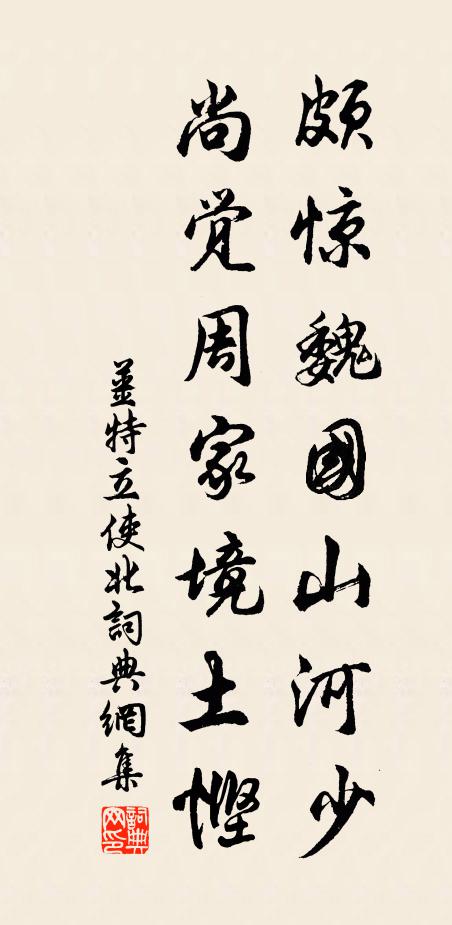 颇惊魏國山河少
尚觉周家境土慳
薑特立使北詞典網集
詞典网印